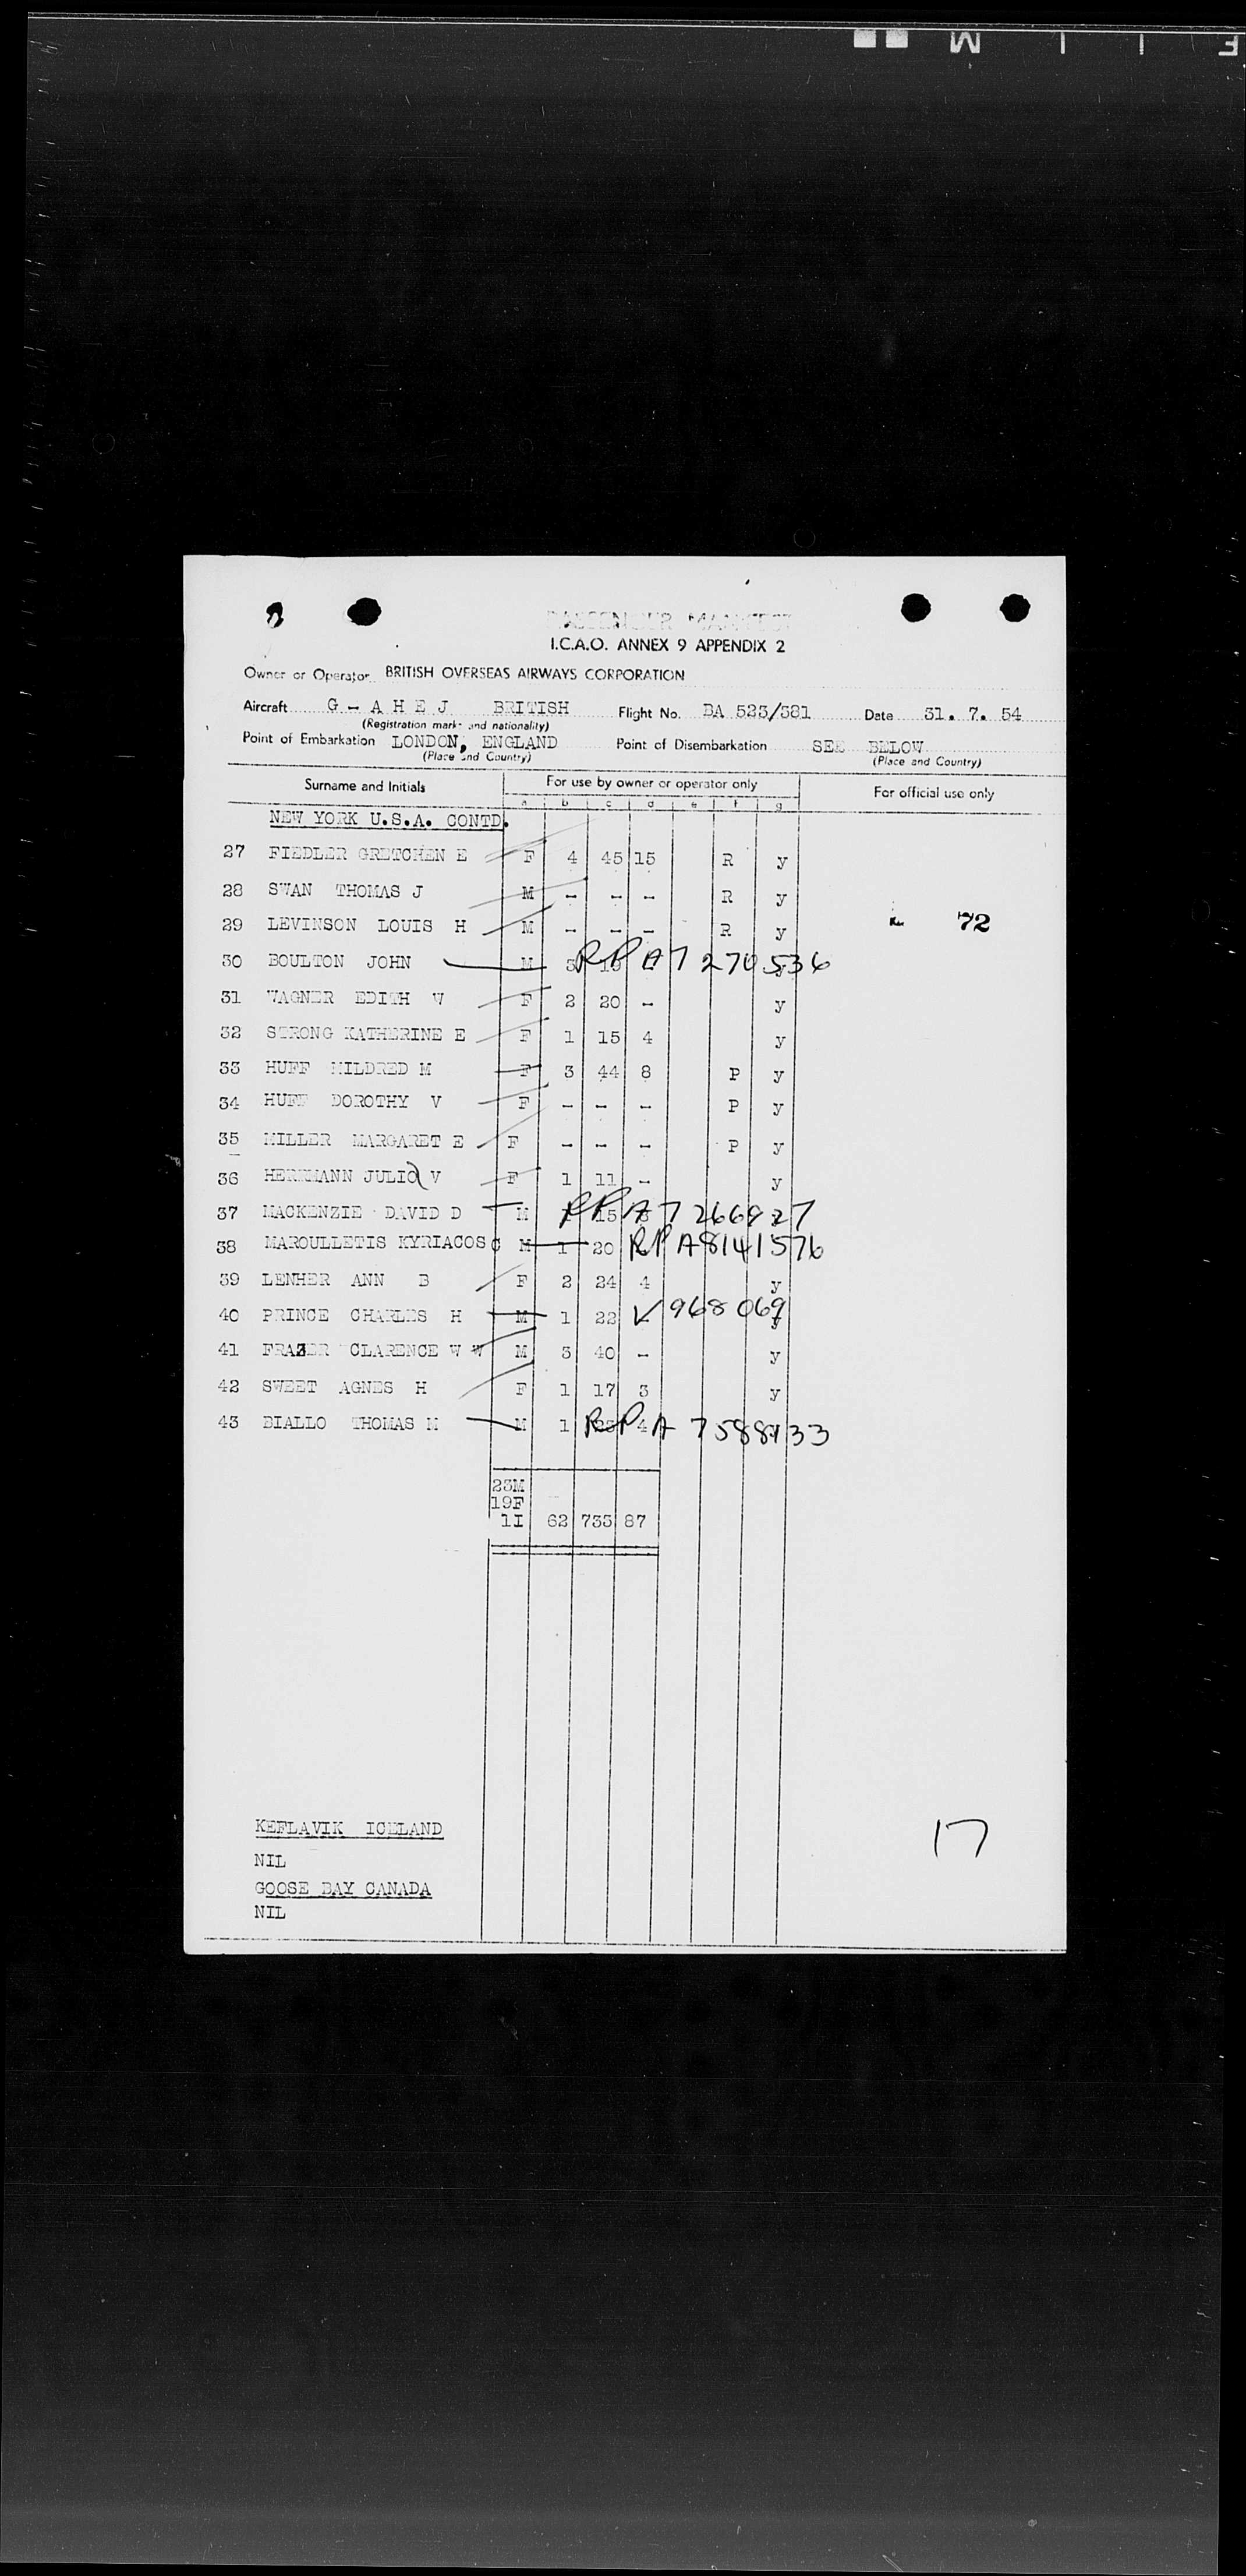 F I L M
PASSENGER MANIFEST
I.C.A.O. ANNEX 9 APPENDIX 2
Owner or Operator BRITISH OVERSEAS AIRWAYS CORPORATION
Aircraft G - A H E J BRITISH Flight No. BA 523/381 Date 31. 7. 54
(Registration marks and nationality)
Point of Embarkation LONDON, ENGLAND Point of Disembarkation SEE BELOW
(Place and Country) (Place and Country)
Surname and Initials For use by owner or operator only For official use only
a b c d e f g
NEW YORK U.S.A. CONTD.
27 FIEDLER GRETCHEN E F 4 45 15 R y
28 SWAN THOMAS J M - - - R y
29 LEVINSON LOUIS H M - - - R y
72
30 BOULTON JOHN M RP A7 270536
31 WAGNER EDITH W F 2 20 - y
32 STRONG KATHERINE E F 1 15 4 y
33 HUFF MILDRED M F 3 44 8 P y
34 HUFF DOROTHY V F - - - P y
35 MILLER MARGARET E F - - - P y
36 HERRMANN JULIA V F 1 11 - y
37 MACKENZIE DAVID D M 15 RP A7 266927
38 MAROULLETIS KYRIACOS C M 1 20 RP A8141576
39 LENHER ANN B F 2 24 4 y
40 PRINCE CHARLES H M 1 22 V 968069
41 FRAZER CLARENCE W W M 3 40 - y
42 SWEET AGNES H F 1 17 3 y
43 BIALLO THOMAS M M 1 4 RP A 7588133
23M
19F
1I 62 733 87
KEFLAVIK ICELAND
17
NIL
GOOSE BAY CANADA
NIL